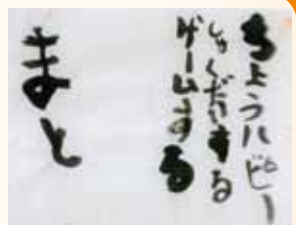 ちょうハピー
しゅくだいする
ゲームする
まと